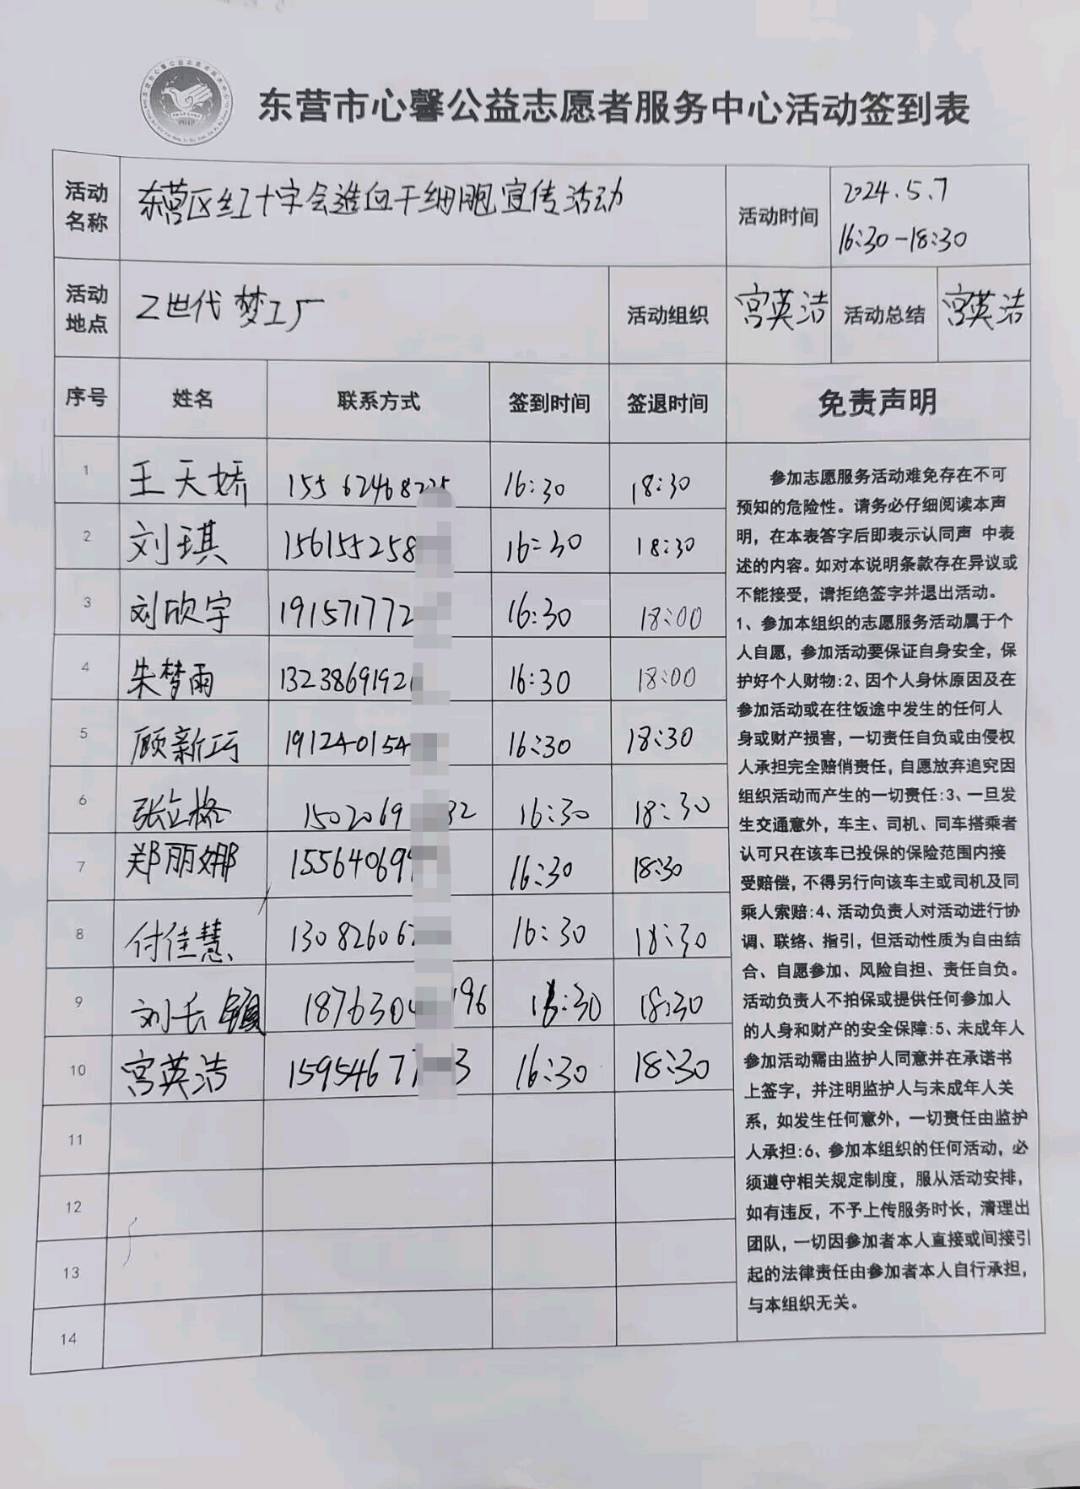 东营市心馨公益志愿者服务中心活动签到表
活动名称 东营区红十字会造血干细胞宣传活动 活动时间 2024.5.7 16:30-18:30
活动地点 Z世代梦工厂 活动组织 宫英洁 活动总结 宫英洁
序号 姓名 联系方式 签到时间 签退时间 免责声明
1 王天娇 155624682 16:30 18:30
2 刘琪 156155258 16:30 18:30
3 刘欣宇 191571772 16:30 18:00
4 朱梦雨 132386919 16:30 18:00
5 顾新巧 191240154 16:30 18:30
6 张立格 1502069 32 16:30 18:30
7 郑丽娜 15564069 16:30 18:30
8 付佳慧 13082606 16:30 18:30
9 刘长 1876304 196 16:30 18:30
10 宫英洁 15954677 3 16:30 18:30
11
12
13
14
参加志愿服务活动难免存在不可
预知的危险性。请务必仔细阅读本声
明,在本表答字后即表示认同声 中表
述的内容。如对本说明条款存在异议或
不能接受,请拒绝签字并退出活动。
1、参加本组织的志愿服务活动属于个
人自愿,参加活动要保证自身安全,保
护好个人财物:2、因个人身休原因及在
参加活动或在往饭途中发生的任何人
身或财产损害,一切责任自负或由侵权
人承担完全赔俏责任,自愿放弃追究因
组织活动而产生的一切责任:3、一旦发
生交通意外,车主、司机、同车搭乘者
认可只在该车已投保的保险范围内接
受赔偿,不得另行向该车主或司机及同
乘人索赔:4、活动负责人对活动进行协
调、联络、指引,但活动性质为自由结
合、自愿参加、风险自担、责任自负。
活动负责人不拍保或提供任何参加人
的人身和财产的安全保障:5、未成年人
参加活动需由监护人同意并在承诺书
上签字,并注明监护人与未成年人关
系,如发生任何意外,一切责任由监护
人承担:6、参加本组织的任何活动,必
须遵守相关规定制度,服从活动安排,
如有违反,不予上传服务时长,清理出
团队,一切因参加者本人直接或间接引
起的法律责任由参加者本人自行承担,
与本组织无关。